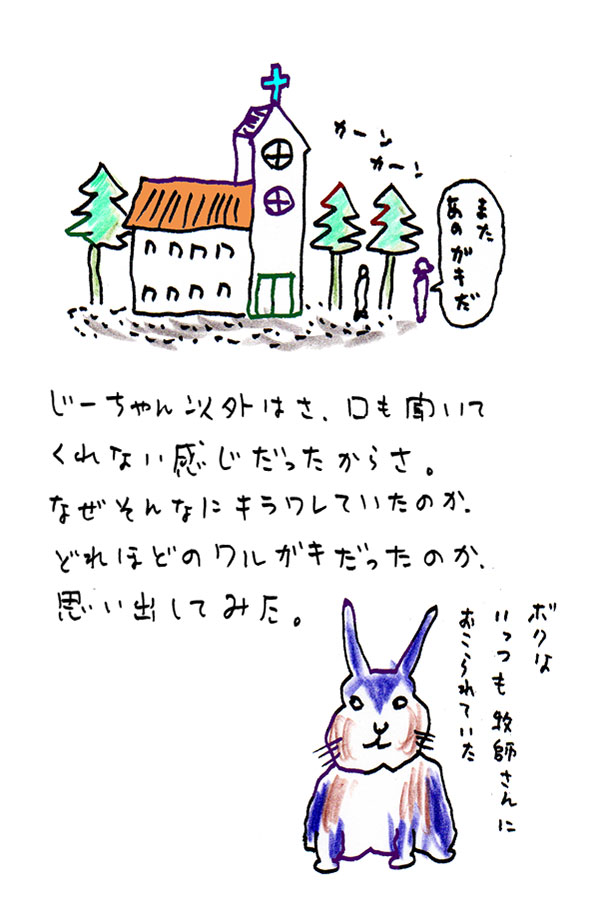 カーン
カーン
また
あのガキだ
じーちゃん以外はさ、口も聞いて
くれない感じだったからさ。
なぜそんなにキラワレていたのか、
どれほどのワルガキだったのか、
思い出してみた。
ボクは
いっつも牧師さんに
おこられていた